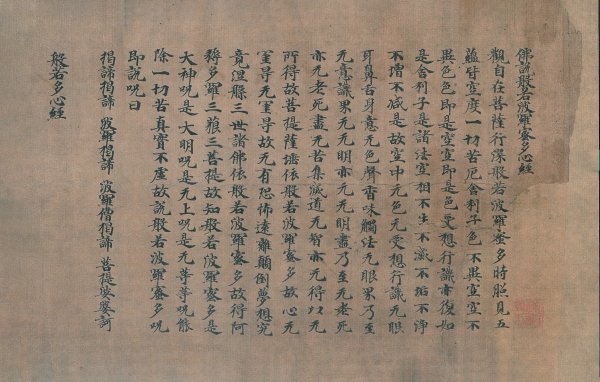 佛說般若波羅蜜多心經
觀自在菩薩行深般若波羅蜜多時照見五
蘊皆空度一切苦厄舍利子色不異空空不
異色色即是空空即是色受想行識亦復如
是舍利子是諸法空相不生不滅不垢不淨
不增不減是故空中无色无受想行識无眼
耳鼻舌身意无色聲香味觸法无眼界乃至
无意識界无无明亦无无明盡乃至无老死
亦无老死盡无苦集滅道无智亦无得以无
所得故菩提薩埵依般若波羅蜜多故心无
罣㝵无罣㝵故无有恐怖遠離顛倒夢想究
竟涅槃三世諸佛依般若波羅蜜多故得阿
耨多羅三藐三菩提故知般若波羅蜜多是
大神呪是大明呪是无上呪是无等等呪能
除一切苦真實不虛故說般若波羅蜜多呪
即說呪曰
揭諦揭諦 波羅揭諦 波羅僧揭諦 菩提娑婆訶
般若多心經